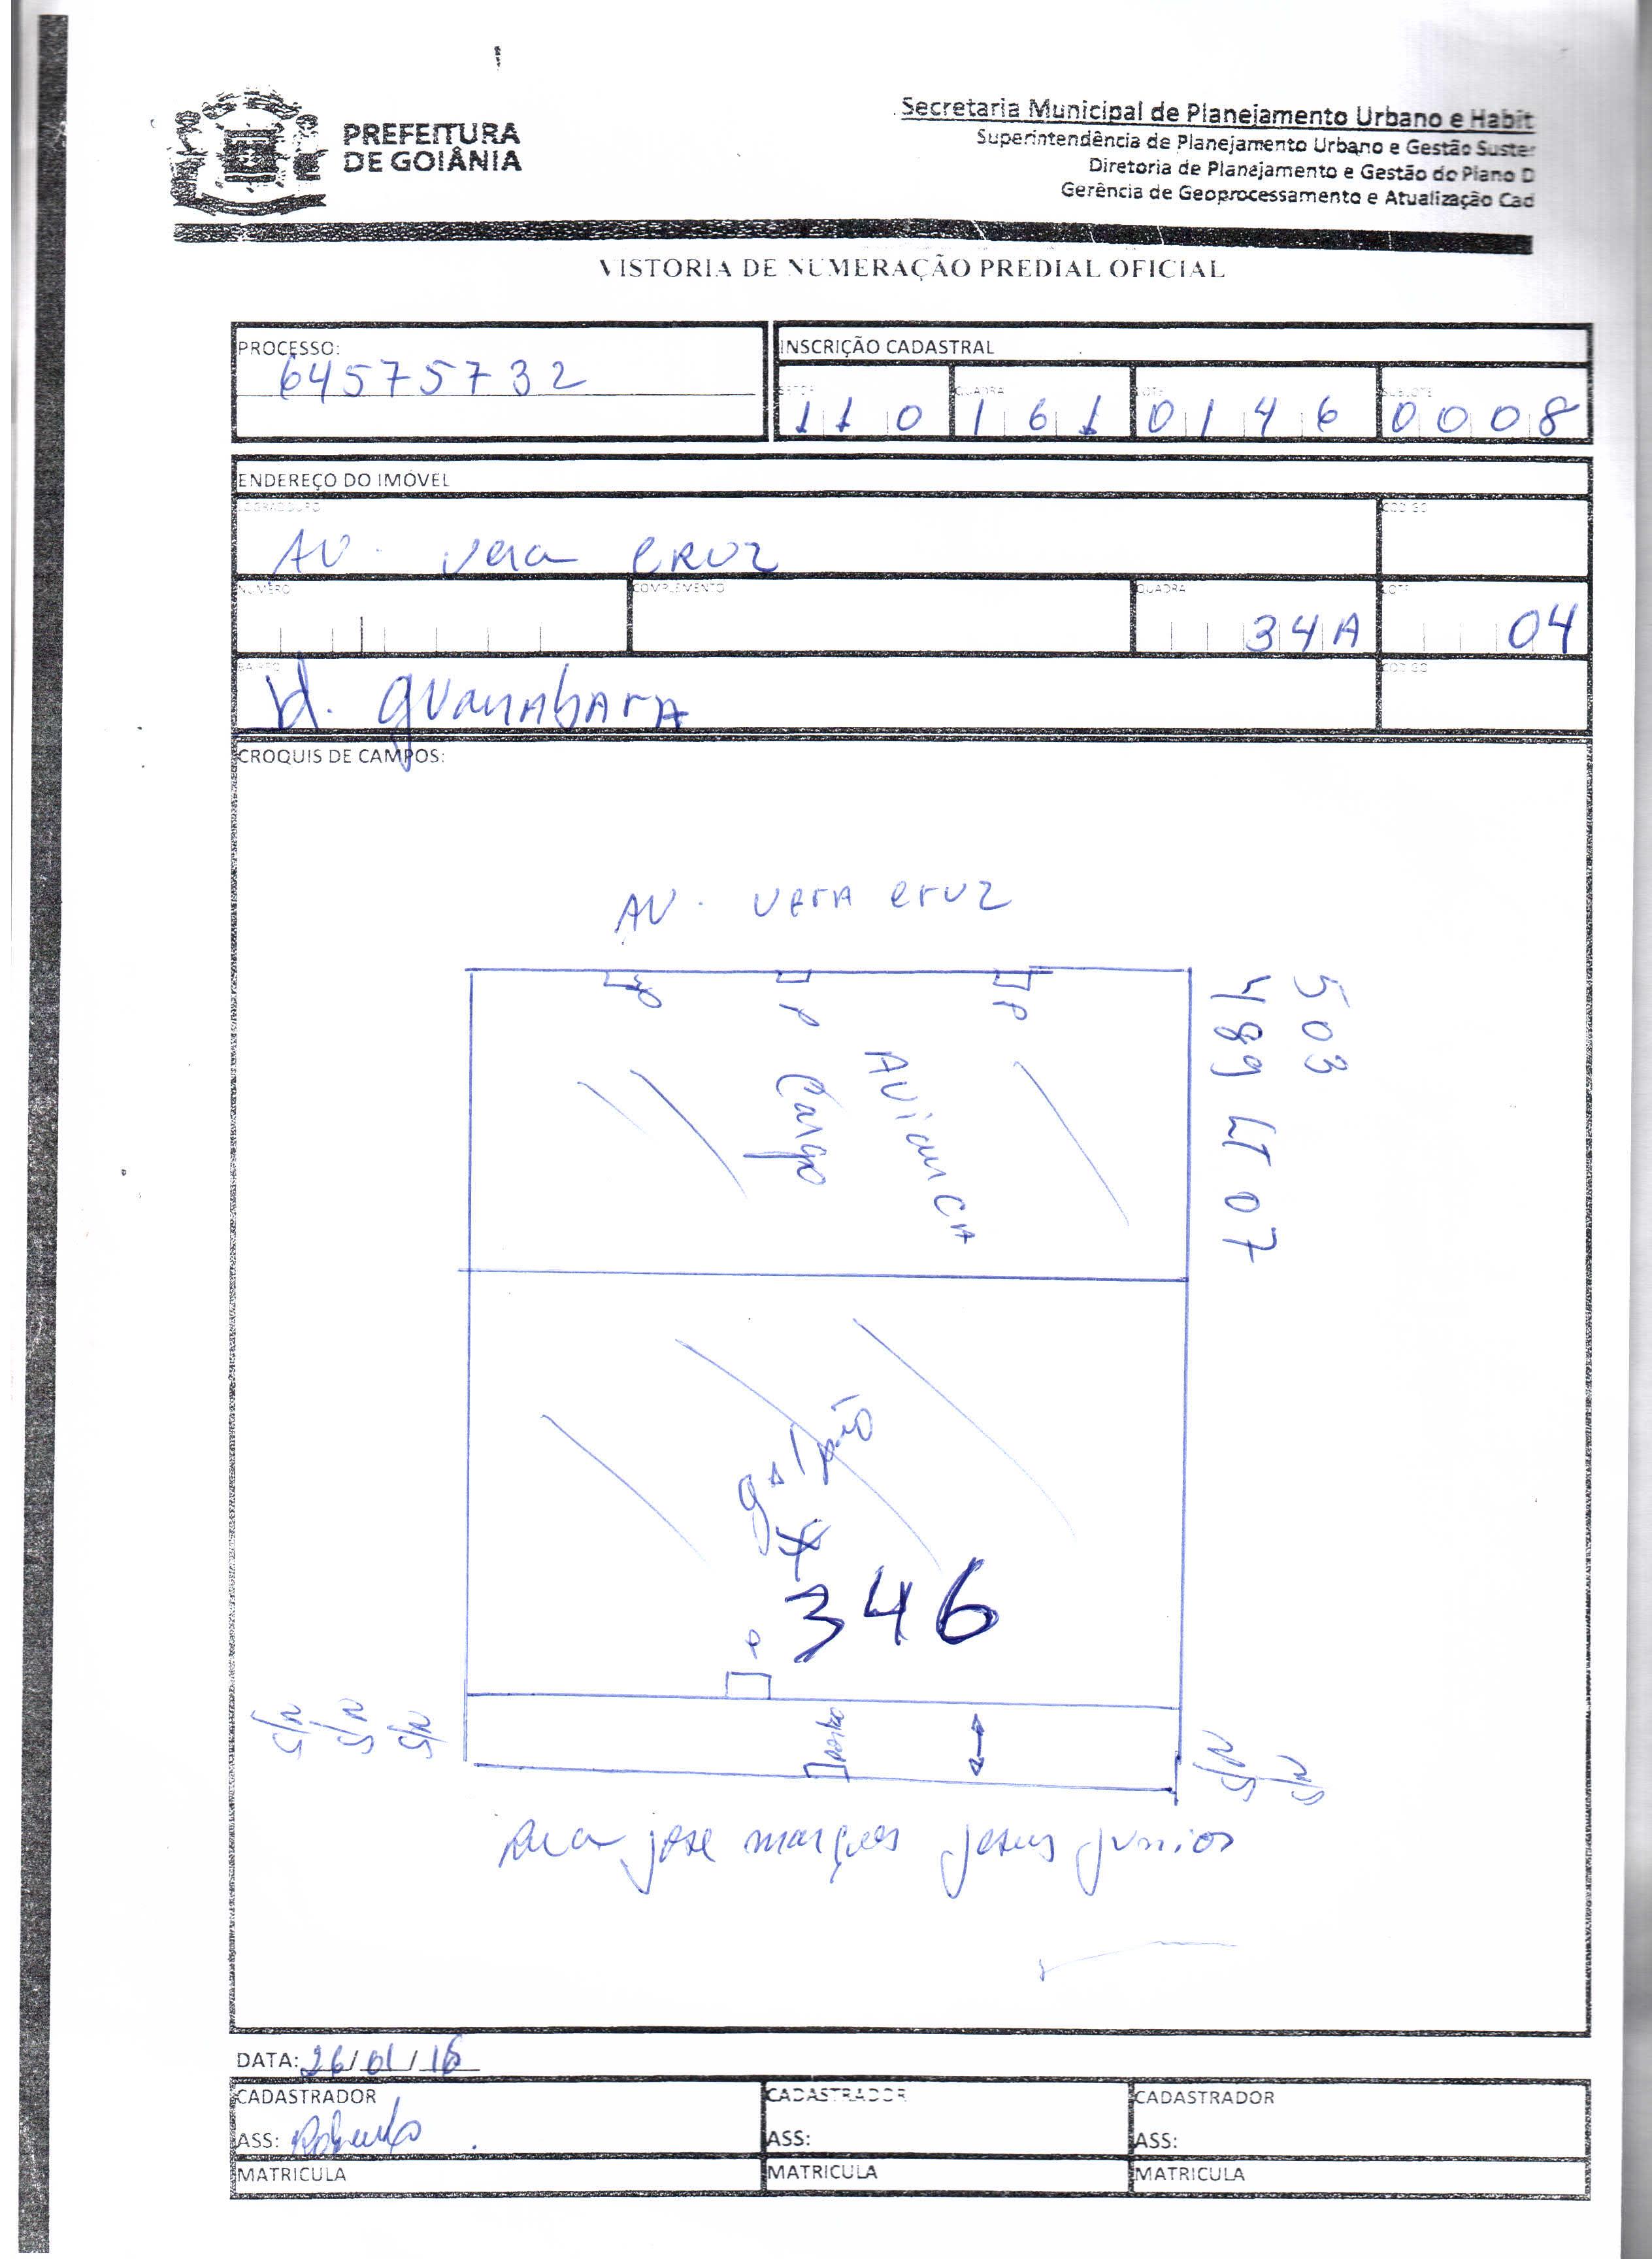 PREFEITURA
DE GOIÂNIA
Secretaria Municipal de Planejamento Urbano e Habit
Superintendência de Planejamento Urbano e Gestão Suster
Diretoria de Planejamento e Gestão do Plano D
Gerência de Geoprocessamento e Atualização Cad
VISTORIA DE NUMERAÇÃO PREDIAL OFICIAL
PROCESSO:
64575732
INSCRIÇÃO CADASTRAL
SETOR QUADRA LOTE SUBLOTE
110 161 0146 0008
ENDEREÇO DO IMÓVEL
LOGRADOURO CODIGO
AV. Vera CRUZ
NUMERO COMPLEMENTO QUADRA LOTE
34A 04
BAIRRO CODIGO
Jd. guanabara
CROQUIS DE CAMPOS:
AV. Vera Cruz
P P P
503
489 LT 07
Avianca
Cargo
galpão
346
P
S/N S/N S/N
portão
S/N S/N
Rua jose marques jesus junior
DATA: 26/01/16
CADASTRADOR CADASTRADOR CADASTRADOR
ASS: Roberto ASS: ASS:
MATRICULA MATRICULA MATRICULA